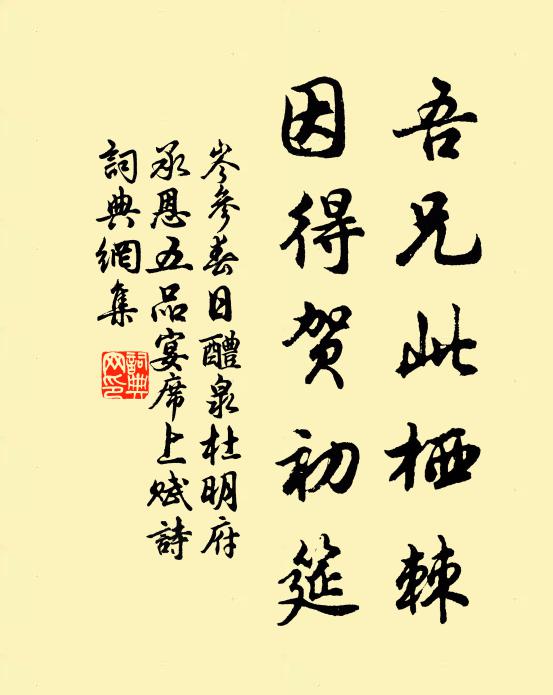 吾兄此栖棘
因得賀初筵
岑參春日醴泉杜明府
承恩五品宴席上賦詩
詞典網集
詞典網印